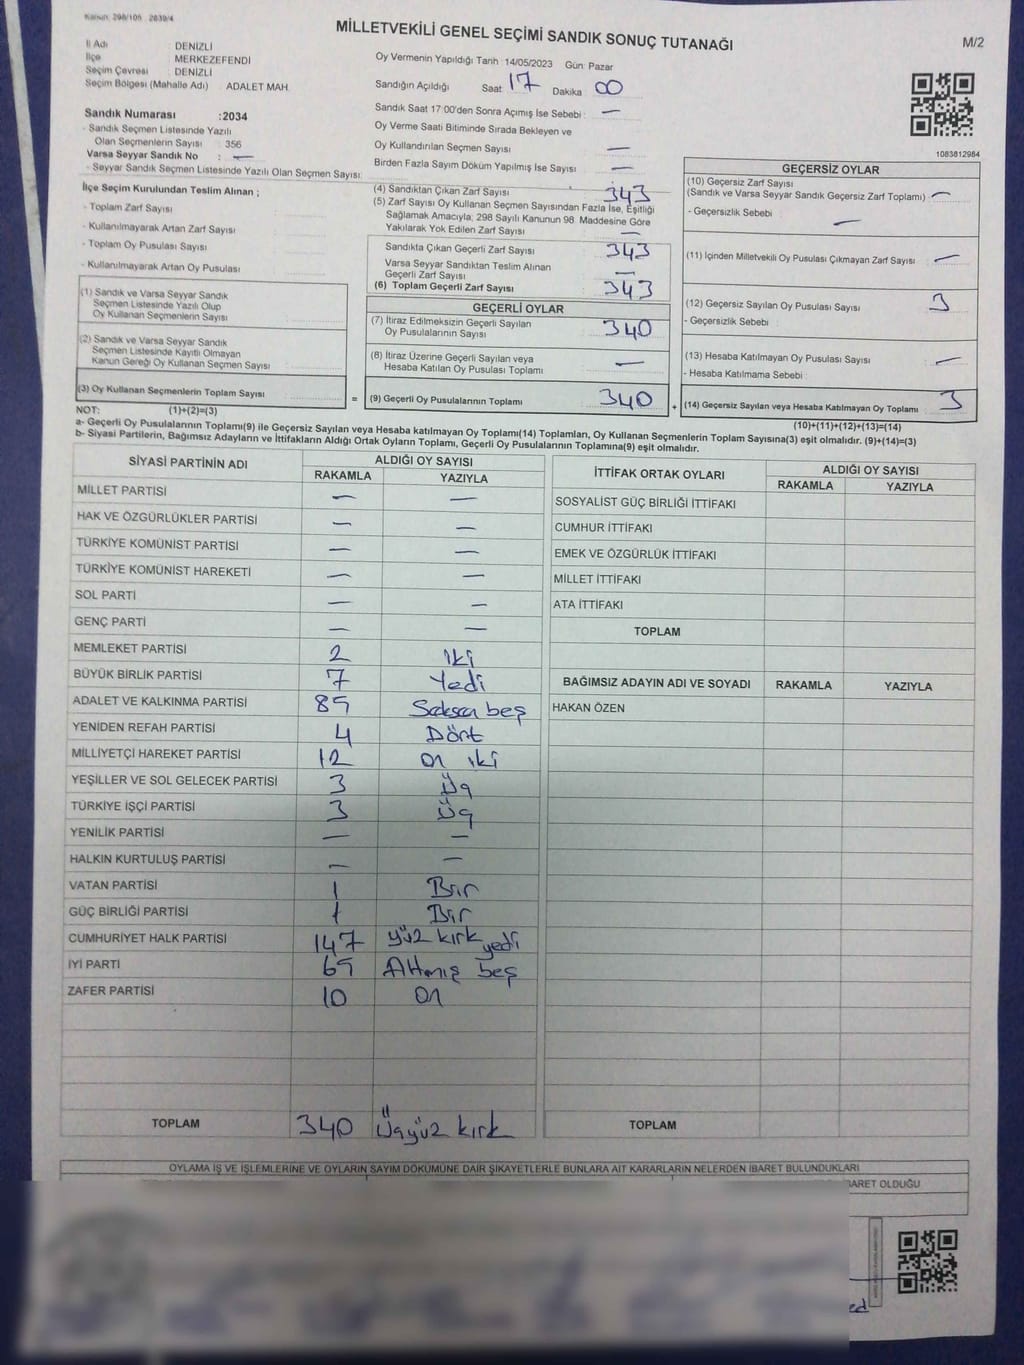 Kanun: 298/105 2839/4
MİLLETVEKİLİ GENEL SEÇİMİ SANDIK SONUÇ TUTANAĞI
M/2
İl Adı : DENİZLİ
İlçe : MERKEZEFENDİ
Seçim Çevresi : DENİZLİ
Seçim Bölgesi (Mahalle Adı) ADALET MAH.
Oy Vermenin Yapıldığı Tarih :14/05/2023 Gün: Pazar
Sandığın Açıldığı Saat 17 Dakika 00
Sandık Saat 17:00'den Sonra Açımış İse Sebebi : —
Oy Verme Saati Bitiminde Sırada Bekleyen ve
Oy Kullandırılan Seçmen Sayısı —
Birden Fazla Sayım Döküm Yapılmış İse Sayısı —
Sandık Numarası :2034
- Sandık Seçmen Listesinde Yazılı
Olan Seçmenlerin Sayısı : 356
Varsa Seyyar Sandık No : —
- Seyyar Sandık Seçmen Listesinde Yazılı Olan Seçmen Sayısı:
1083812984
İlçe Seçim Kurulundan Teslim Alınan ;
- Toplam Zarf Sayısı
- Kullanılmayarak Artan Zarf Sayısı
- Toplam Oy Pusulası Sayısı
- Kullanılmayarak Artan Oy Pusulası
(1) Sandık ve Varsa Seyyar Sandık
Seçmen Listesinde Yazılı Olup
Oy Kullanan Seçmenlerin Sayısı
(2) Sandık ve Varsa Seyyar Sandık
Seçmen Listesinde Kayıtlı Olmayan
Kanun Gereği Oy Kullanan Seçmen Sayısı
(3) Oy Kullanan Seçmenlerin Toplam Sayısı
(4) Sandıktan Çıkan Zarf Sayısı 343
(5) Zarf Sayısı Oy Kullanan Seçmen Sayısından Fazla İse, Eşitliği
Sağlamak Amacıyla; 298 Sayılı Kanunun 98. Maddesine Göre
Yakılarak Yok Edilen Zarf Sayısı —
Sandıkta Çıkan Geçerli Zarf Sayısı 343
Varsa Seyyar Sandıktan Teslim Alınan
Geçerli Zarf Sayısı —
(6) Toplam Geçerli Zarf Sayısı 343
GEÇERLİ OYLAR
(7) İtiraz Edilmeksizin Geçerli Sayılan
Oy Pusulalarının Sayısı 340
(8) İtiraz Üzerine Geçerli Sayılan veya
Hesaba Katılan Oy Pusulası Toplamı —
= (9) Geçerli Oy Pusulalarının Toplamı 340 +
GEÇERSİZ OYLAR
(10) Geçersiz Zarf Sayısı
(Sandık ve Varsa Seyyar Sandık Geçersiz Zarf Toplamı) —
- Geçersizlik Sebebi —
(11) İçinden Milletvekili Oy Pusulası Çıkmayan Zarf Sayısı —
(12) Geçersiz Sayılan Oy Pusulası Sayısı 3
- Geçersizlik Sebebi
(13) Hesaba Katılmayan Oy Pusulası Sayısı —
- Hesaba Katılmama Sebebi :
(14) Geçersiz Sayılan veya Hesaba Katılmayan Oy Toplamı 3
NOT: (1)+(2)=(3)
(10)+(11)+(12)+(13)=(14)
a- Geçerli Oy Pusulalarının Toplamı(9) ile Geçersiz Sayılan veya Hesaba katılmayan Oy Toplamı(14) Toplamları, Oy Kullanan Seçmenlerin Toplam Sayısına(3) eşit olmalıdır. (9)+(14)=(3)
b- Siyasi Partilerin, Bağımsız Adayların ve İttifakların Aldığı Ortak Oyların Toplamı, Geçerli Oy Pusulalarının Toplamına(9) eşit olmalıdır.
SİYASİ PARTİNİN ADI ALDIĞI OY SAYISI
RAKAMLA YAZIYLA
MİLLET PARTİSİ — —
HAK VE ÖZGÜRLÜKLER PARTİSİ — —
TÜRKİYE KOMÜNİST PARTİSİ — —
TÜRKİYE KOMÜNİST HAREKETİ — —
SOL PARTİ — —
GENÇ PARTİ — —
MEMLEKET PARTİSİ 2 iki
BÜYÜK BİRLİK PARTİSİ 7 Yedi
ADALET VE KALKINMA PARTİSİ 85 Seksen beş
YENİDEN REFAH PARTİSİ 4 Dört
MİLLİYETÇİ HAREKET PARTİSİ 12 on iki
YEŞİLLER VE SOL GELECEK PARTİSİ 3 Üç
TÜRKİYE İŞÇİ PARTİSİ 3 Üç
YENİLİK PARTİSİ — —
HALKIN KURTULUŞ PARTİSİ — —
VATAN PARTİSİ 1 Bir
GÜÇ BİRLİĞİ PARTİSİ 1 Bir
CUMHURİYET HALK PARTİSİ 147 yüz kırk yedi
İYİ PARTİ 65 Altmış beş
ZAFER PARTİSİ 10 on
TOPLAM 340 Üçyüz kırk
İTTİFAK ORTAK OYLARI ALDIĞI OY SAYISI
RAKAMLA YAZIYLA
SOSYALİST GÜÇ BİRLİĞİ İTTİFAKI
CUMHUR İTTİFAKI
EMEK VE ÖZGÜRLÜK İTTİFAKI
MİLLET İTTİFAKI
ATA İTTİFAKI
TOPLAM
BAĞIMSIZ ADAYIN ADI VE SOYADI RAKAMLA YAZIYLA
HAKAN ÖZEN
TOPLAM
OYLAMA İŞ VE İŞLEMLERİNE VE OYLARIN SAYIM DÖKÜMÜNE DAİR ŞİKAYETLERLE BUNLARA AİT KARARLARIN NELERDEN İBARET BULUNDUKLARI
BARET OLDUĞU